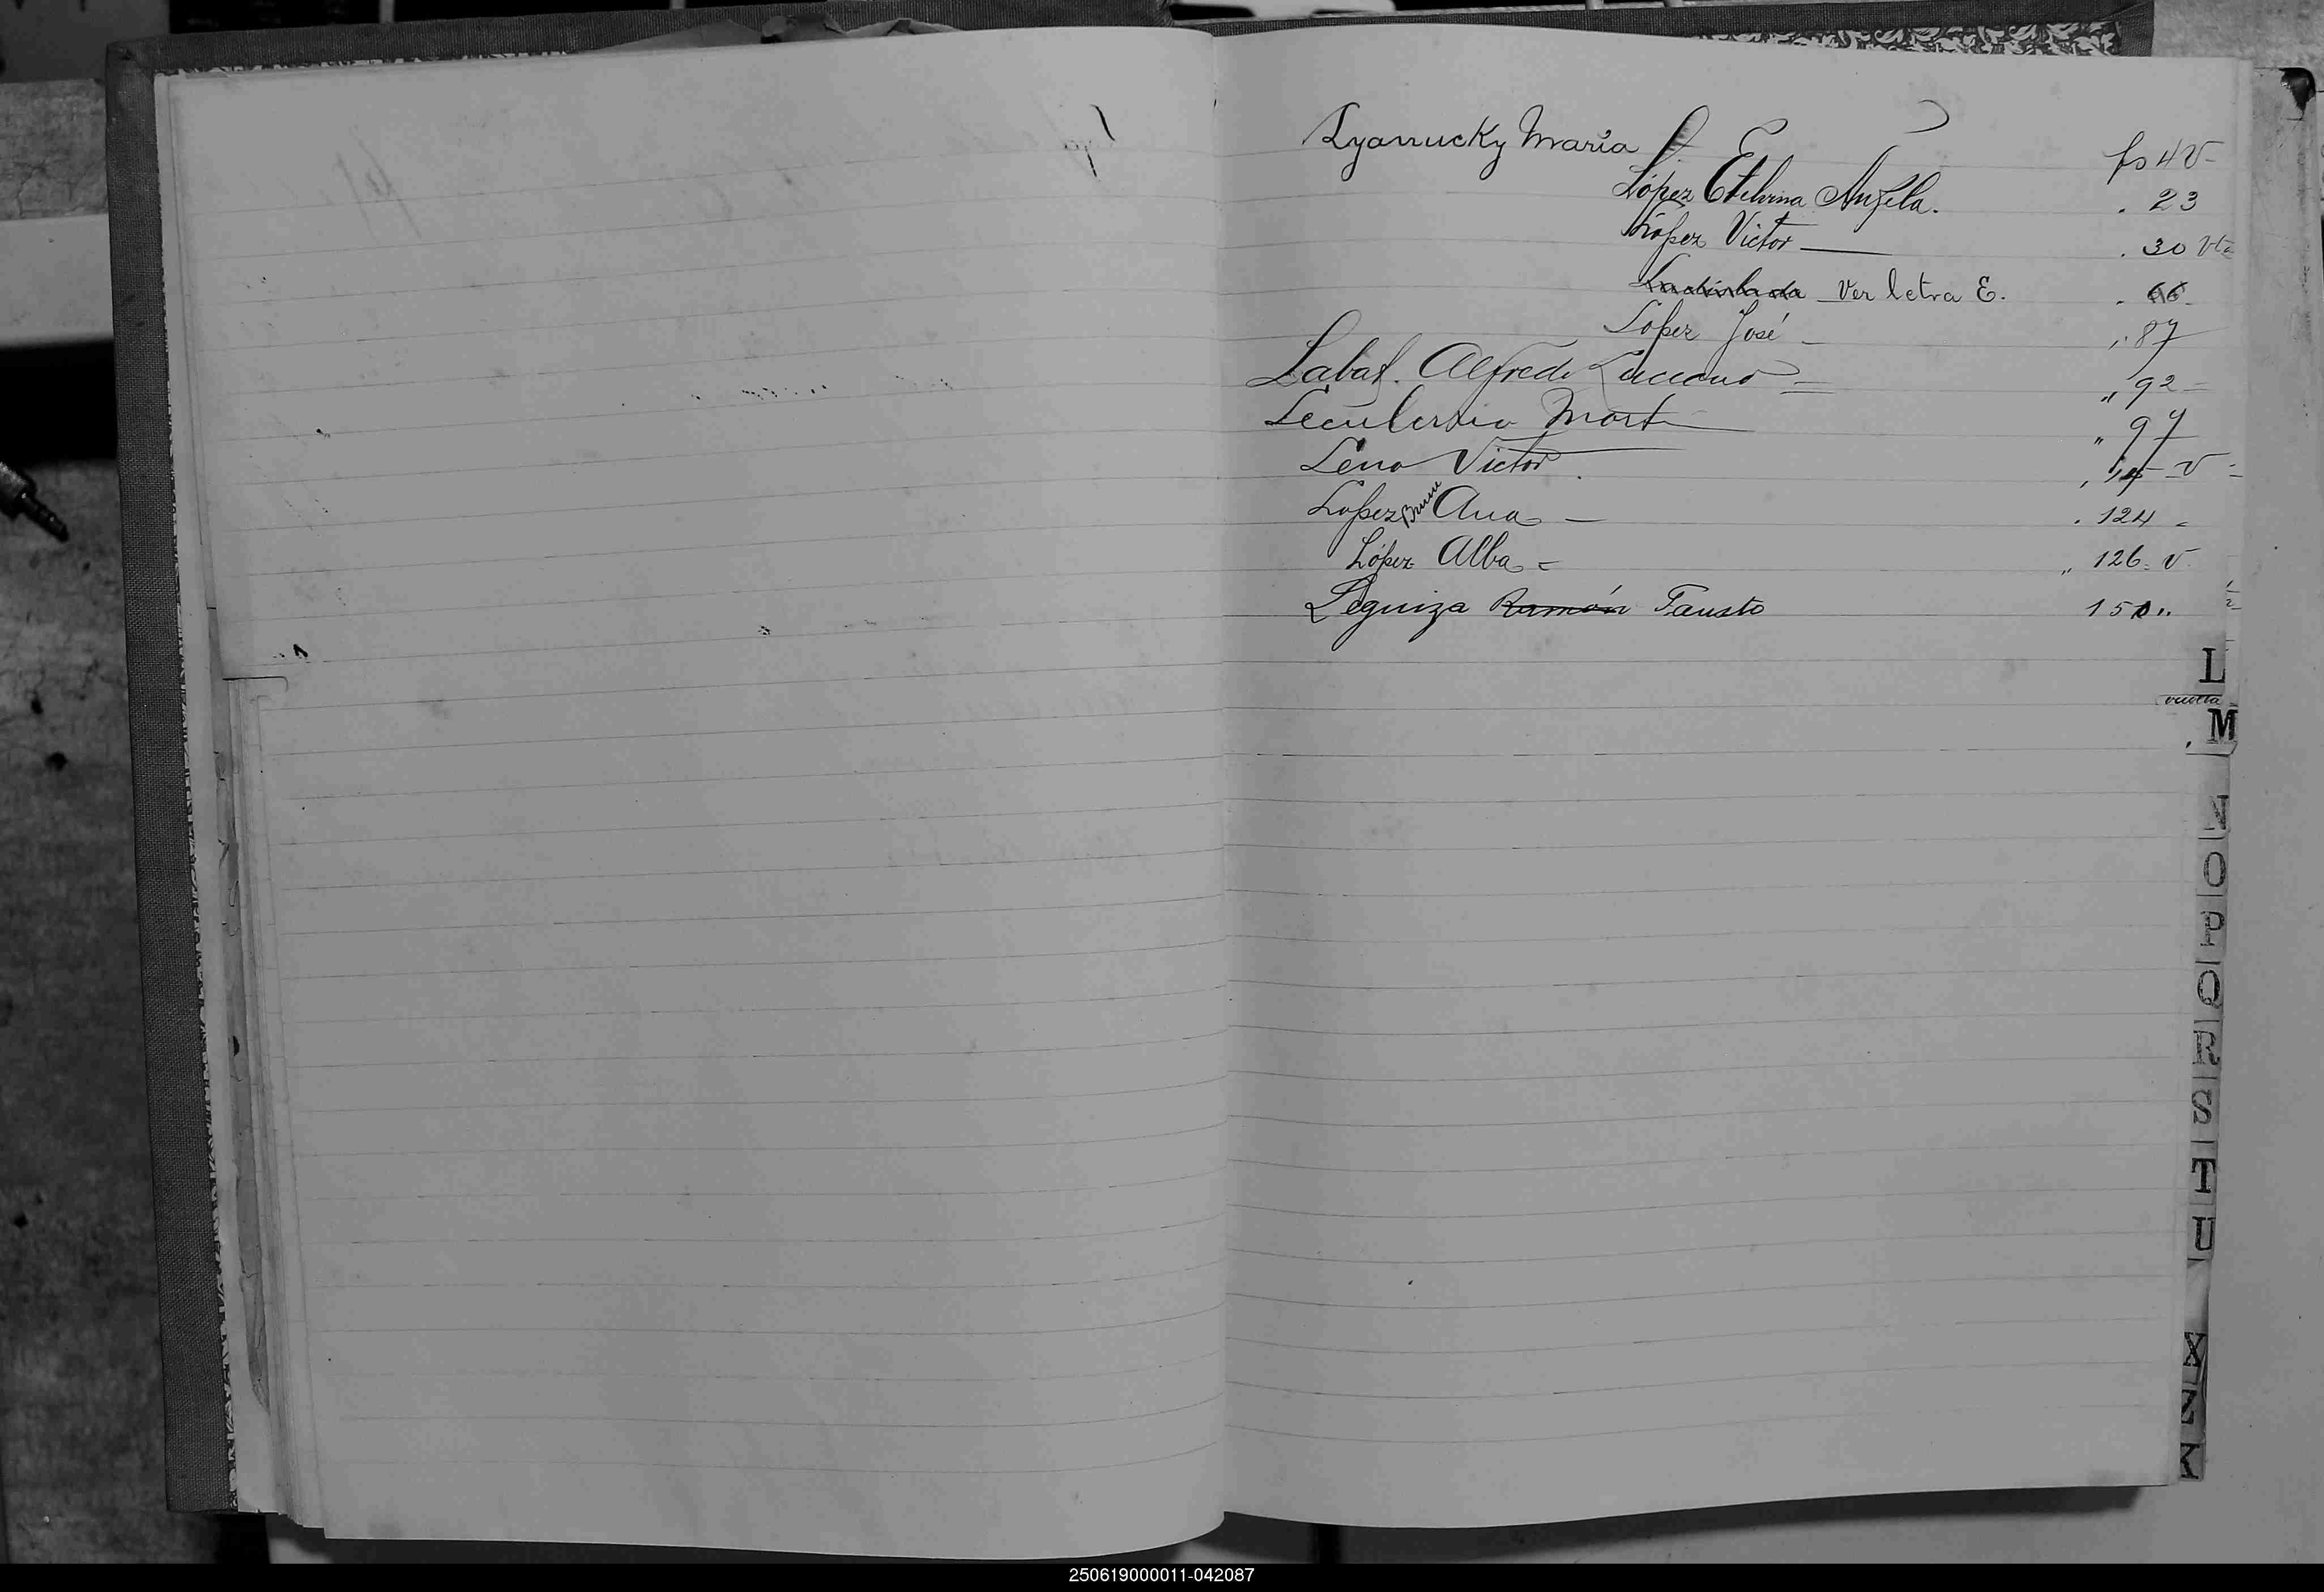 Lyanucky María fs 4 v
López Etelvina Angela. . 23
López Víctor — . 30 Vta
Ver letra E. . 66
López José - 87
Labat. Alfredo Luciano = " 92 =
Mart " 97
Leno Victor. v
Lopez Ana — . 124 =
López Alba = " 126. v.
Leguiza Ramón Fausto 150 "
L
vuelta
M
N
O
P
Q
R
S
T
U
X
Z
K
250619000011-042087